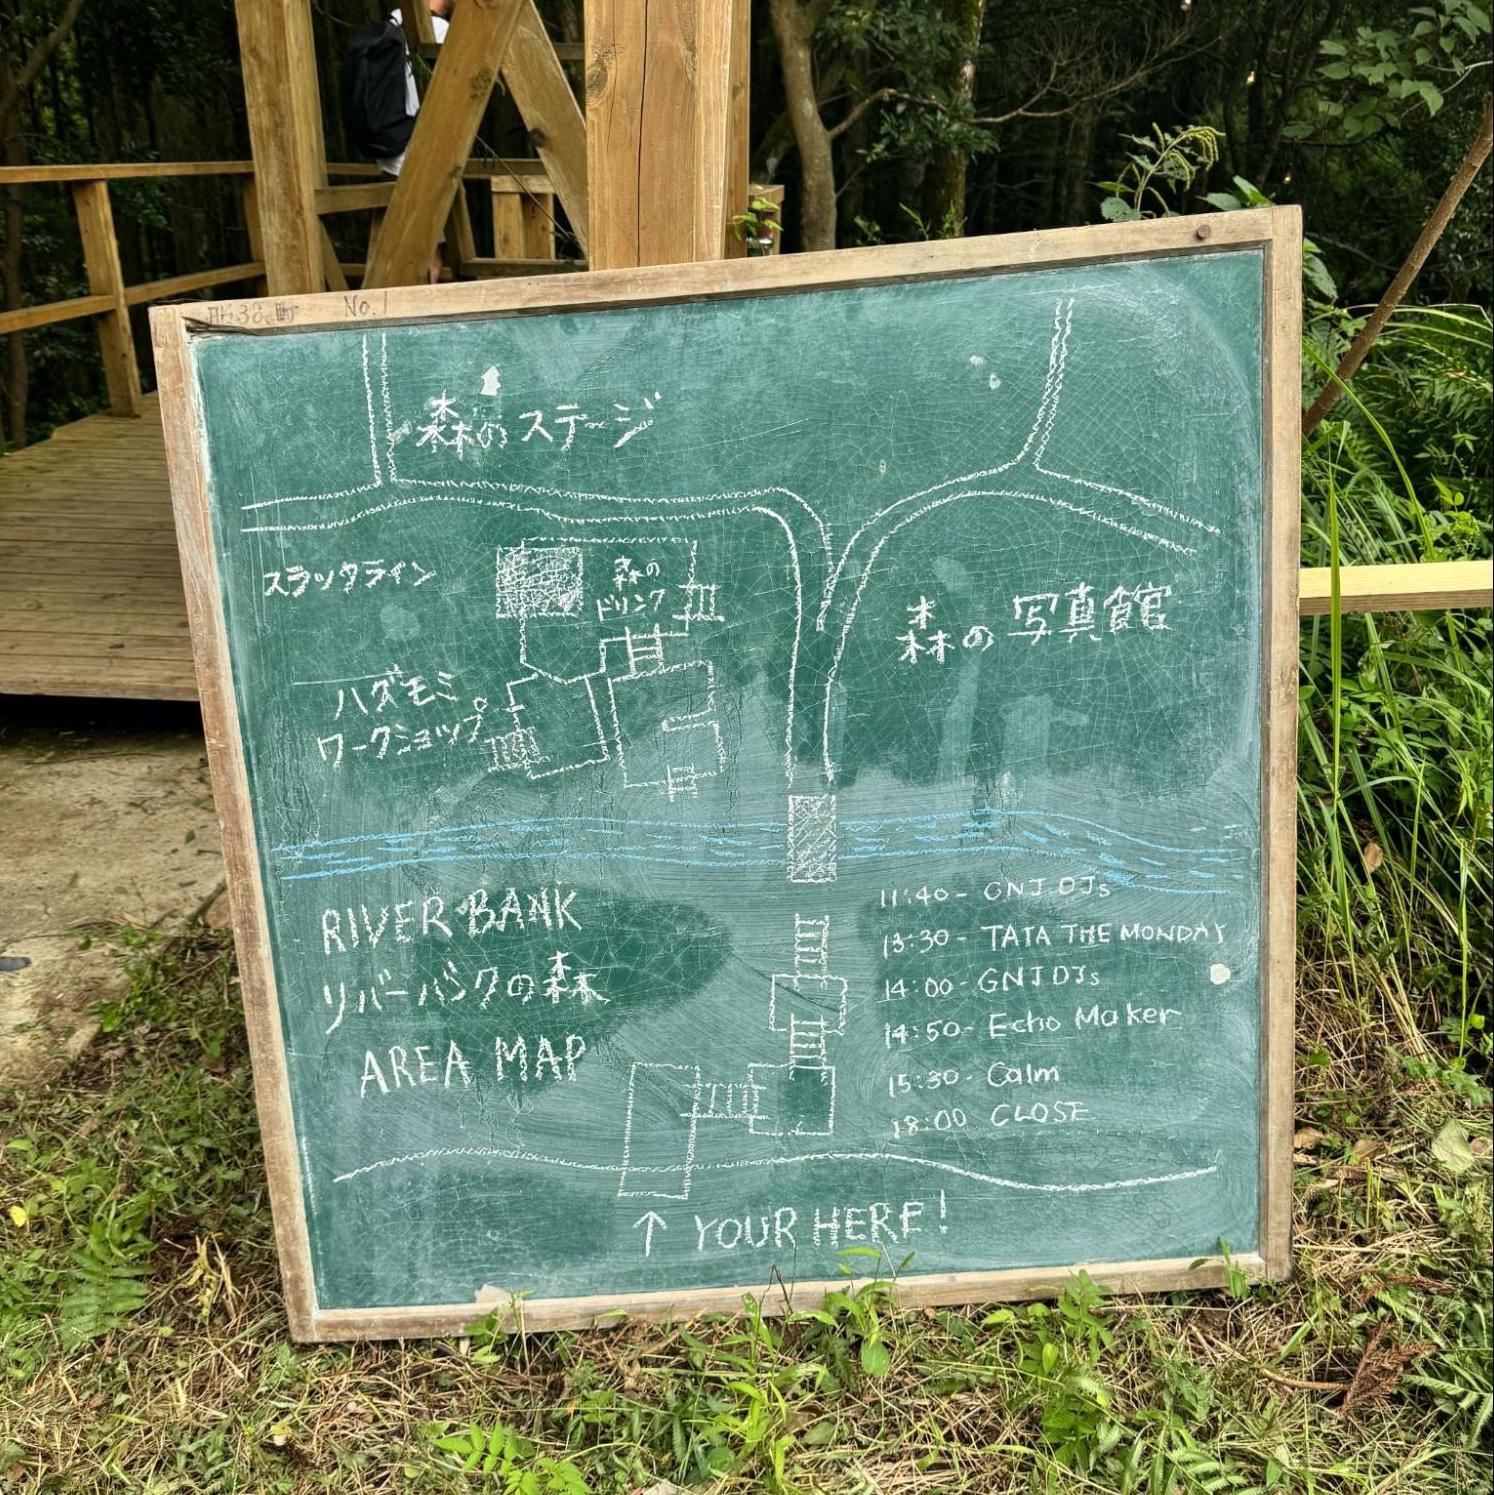 No.1
森のステージ
スラックライン
森の
ドリンク
森の写真館
ハダモミ
ワークショップ
RIVER BANK
リバーバンクの森
AREA MAP
11:40- GNJ DJs
13:30- TATA THE MONDAY
14:00- GNJ DJs
14:50- Echo Maker
15:30- Calm
18:00 CLOSE
↑ YOUR HERE!